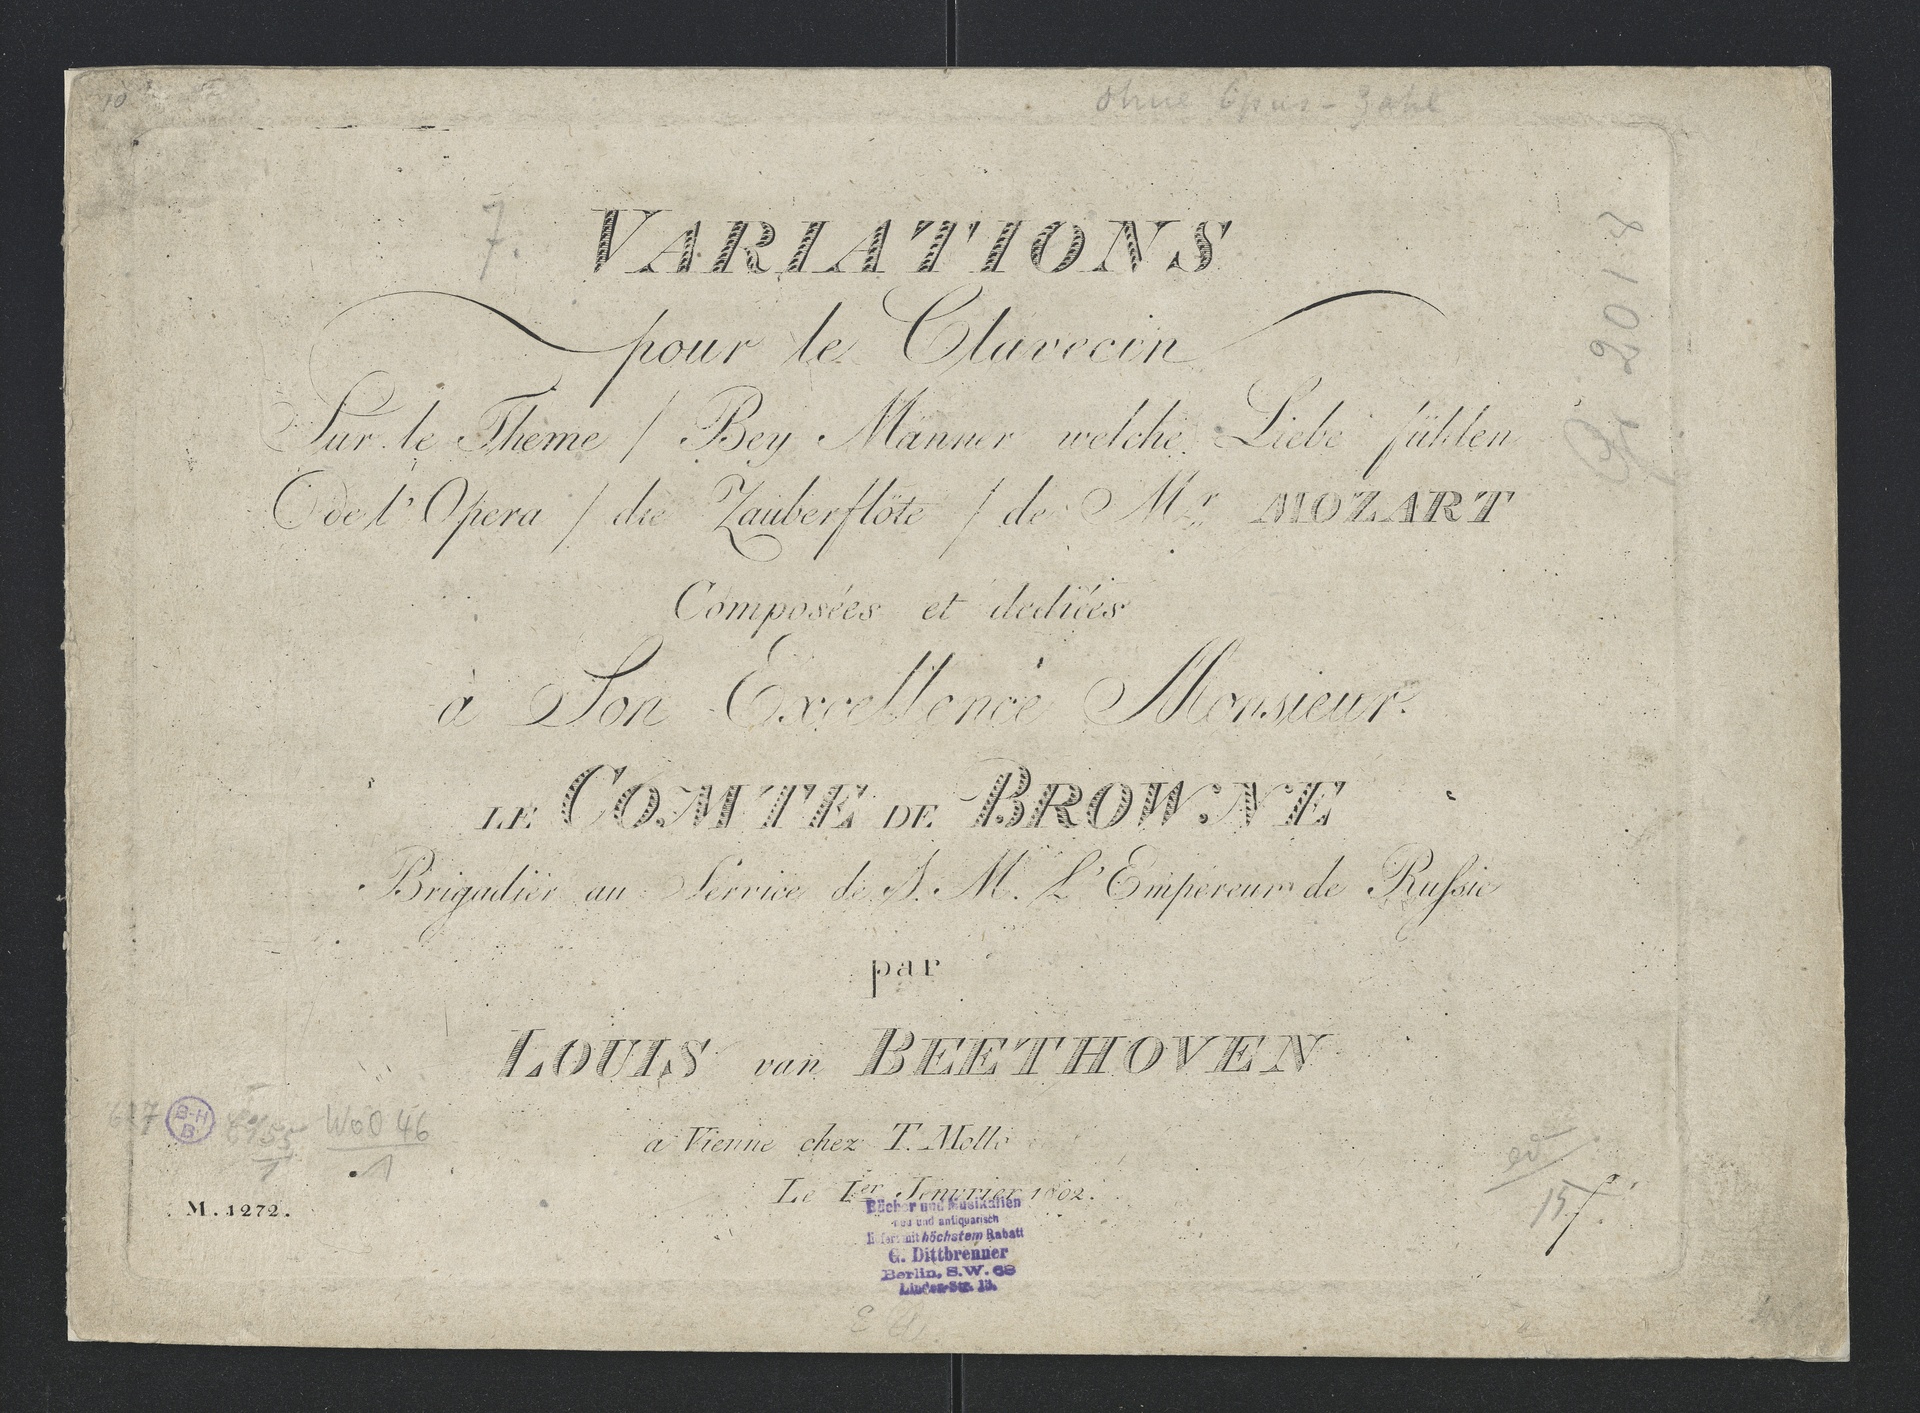 ohne Opus-Zahl
7.
VARIATIONS
pour le Clavecin
Sur le Thême / Bey Männer welche Liebe fühlen
de l'Opera / die Zauberflöte / de Mr. MOZART
Composées et dediées
à Son Excellence Monsieur
LE COMTE DE BROWNE
Brigadier au Service de S. M. L'Empereur de Russie
par
LOUIS van BEETHOVEN
a Vienne chez T. Mollo
Le 1er Jenvrier 1802.
B-H
B
WoO 46
M. 1272.
Bücher und Musikalien
neu und antiquarisch
liefert mit höchstem Rabatt
G. Dittbrenner
Berlin, S.W. 68
Linden-Str. 13.